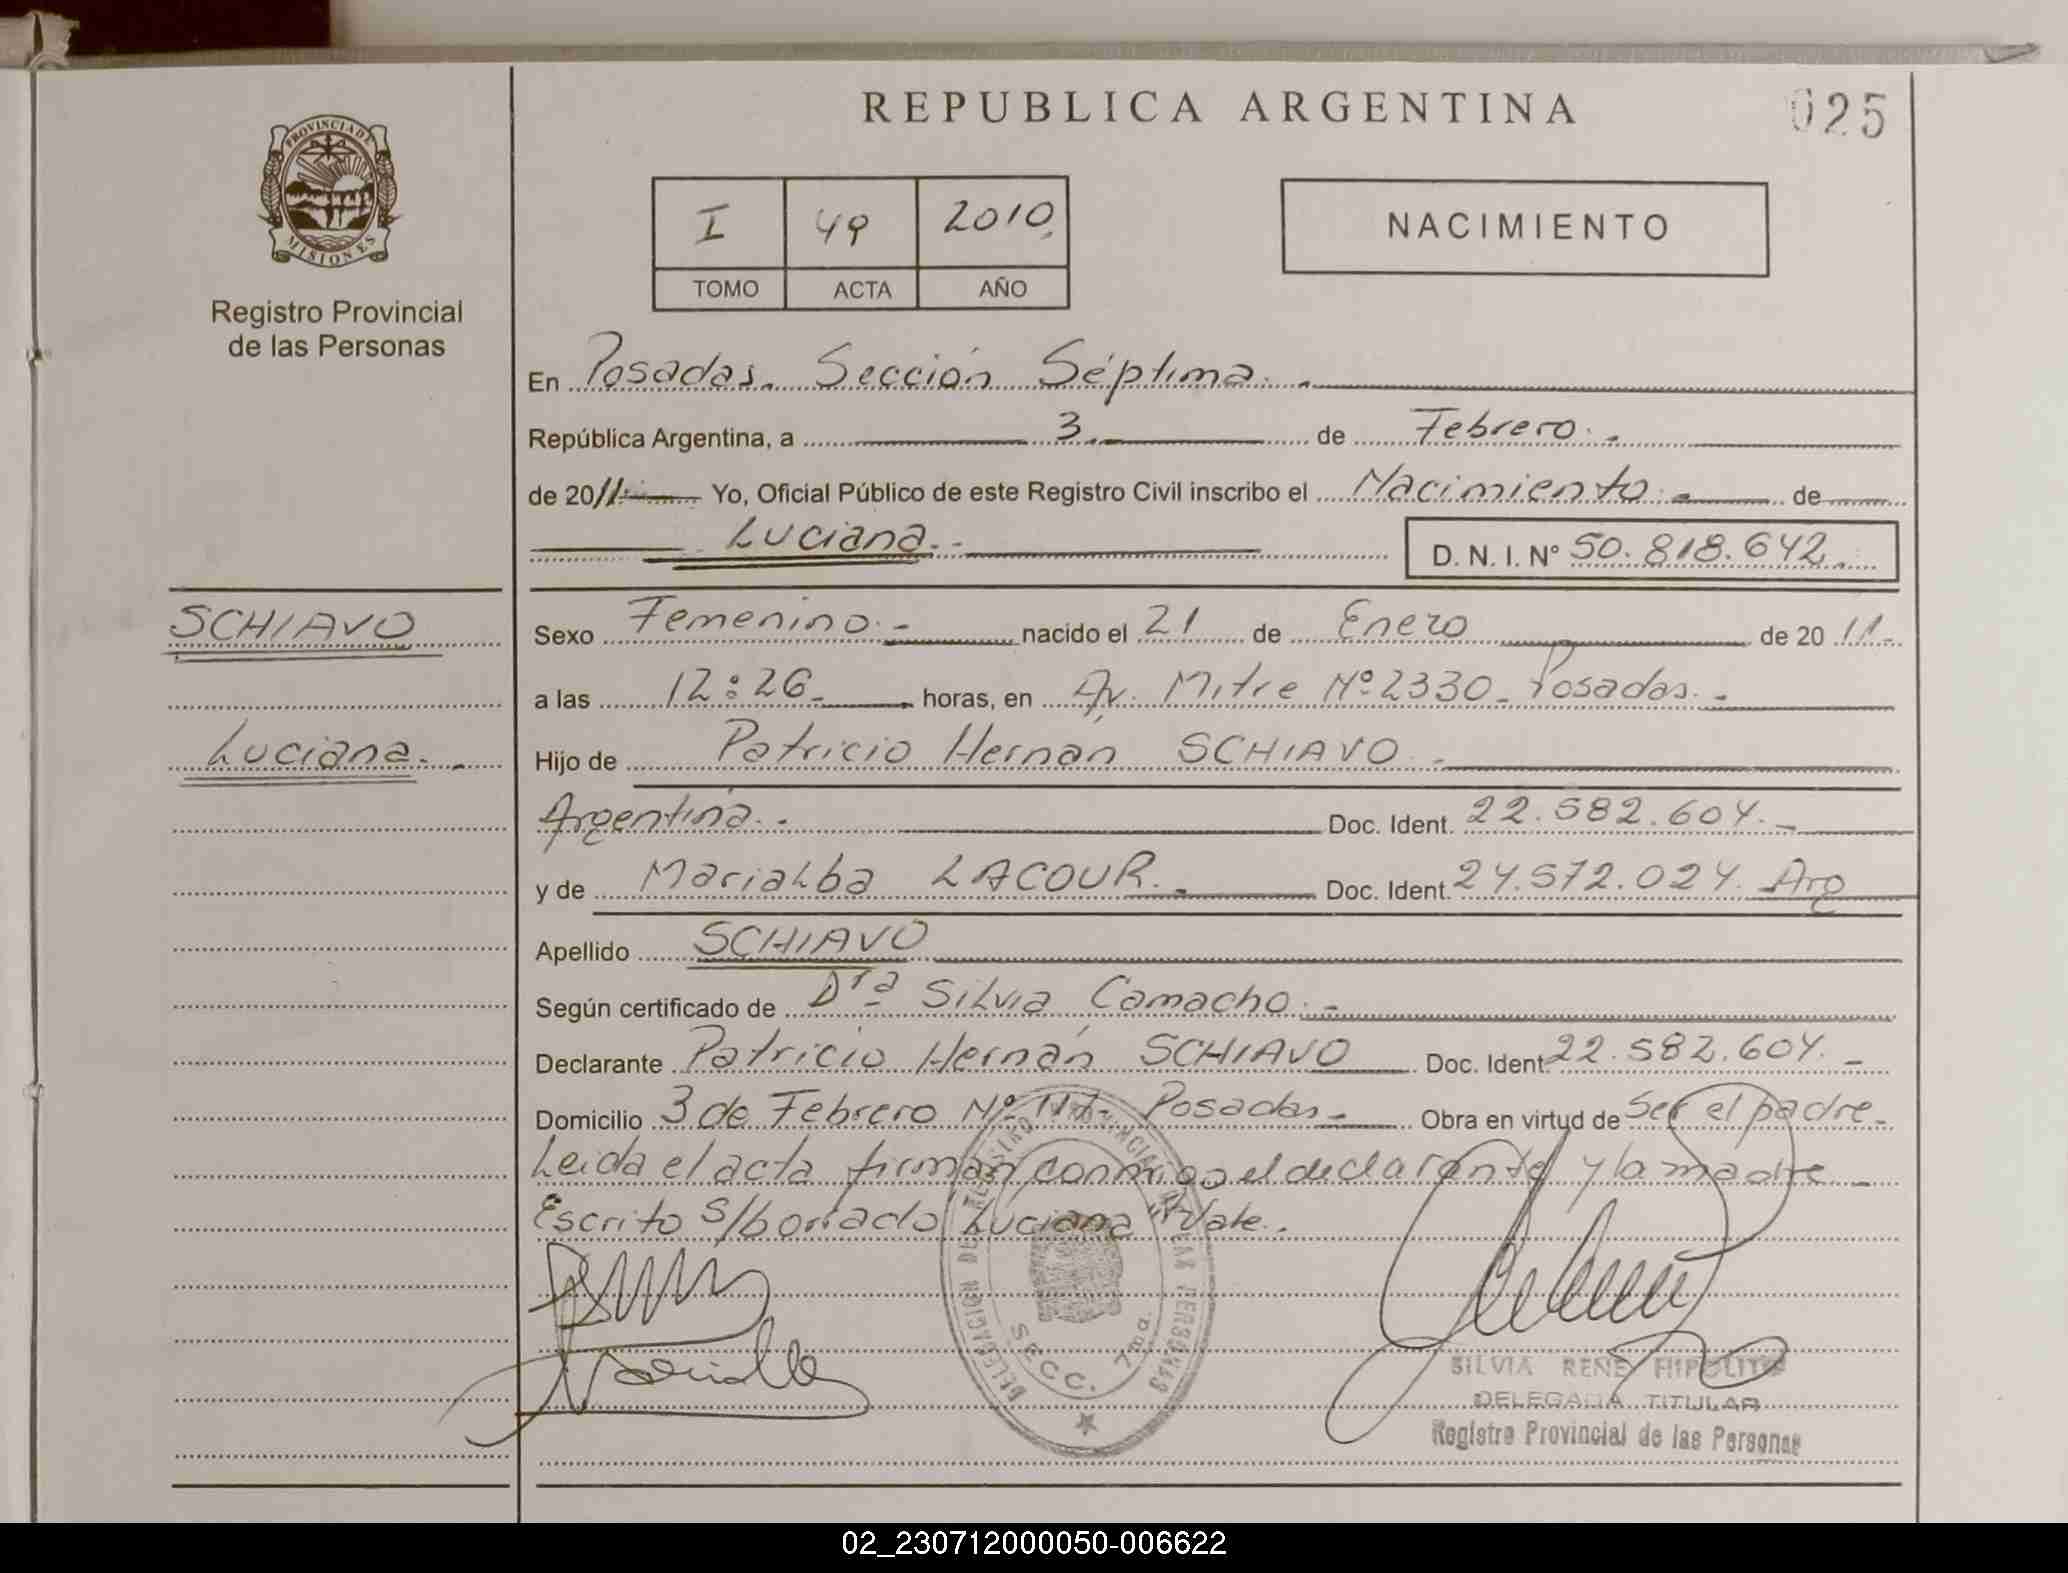 REPUBLICA ARGENTINA
025
PROVINCIA DE MISIONES
Registro Provincial
de las Personas
I 49 2010
TOMO ACTA AÑO
NACIMIENTO
En Posadas. Sección Séptima.
República Argentina, a 3 de Febrero.
de 2011 Yo, Oficial Público de este Registro Civil inscribo el Nacimiento de
Luciana. D. N. I. N° 50.818.642
SCHIAVO
Luciana.
Sexo Femenino.- nacido el 21 de Enero de 20 11.
a las 12:26 horas, en Av. Mitre Nº 2330 - Posadas.-
Hijo de Patricio Hernán SCHIAVO.
Argentina.- Doc. Ident. 22.582.604.-
y de MariaLba LACOUR.- Doc. Ident. 24.572.024. Arg
Apellido SCHIAVO
Según certificado de Drª Silvia Camacho.-
Declarante Patricio Hernán SCHIAVO Doc. Ident. 22.582.604.-
Domicilio 3 de Febrero Nº Posadas.- Obra en virtud de Ser el padre.-
Leida el acta firman conmigo el declarante y la madre.-
Escrito s/borrado Luciana" Vale.
DELEGACION DEL REGISTRO PROVINCIAL DE LAS PERSONAS
SECC. 7ma.
SILVIA RENE HIPOLITO
DELEGADA TITULAR
Registro Provincial de las Personas
02_230712000050-006622